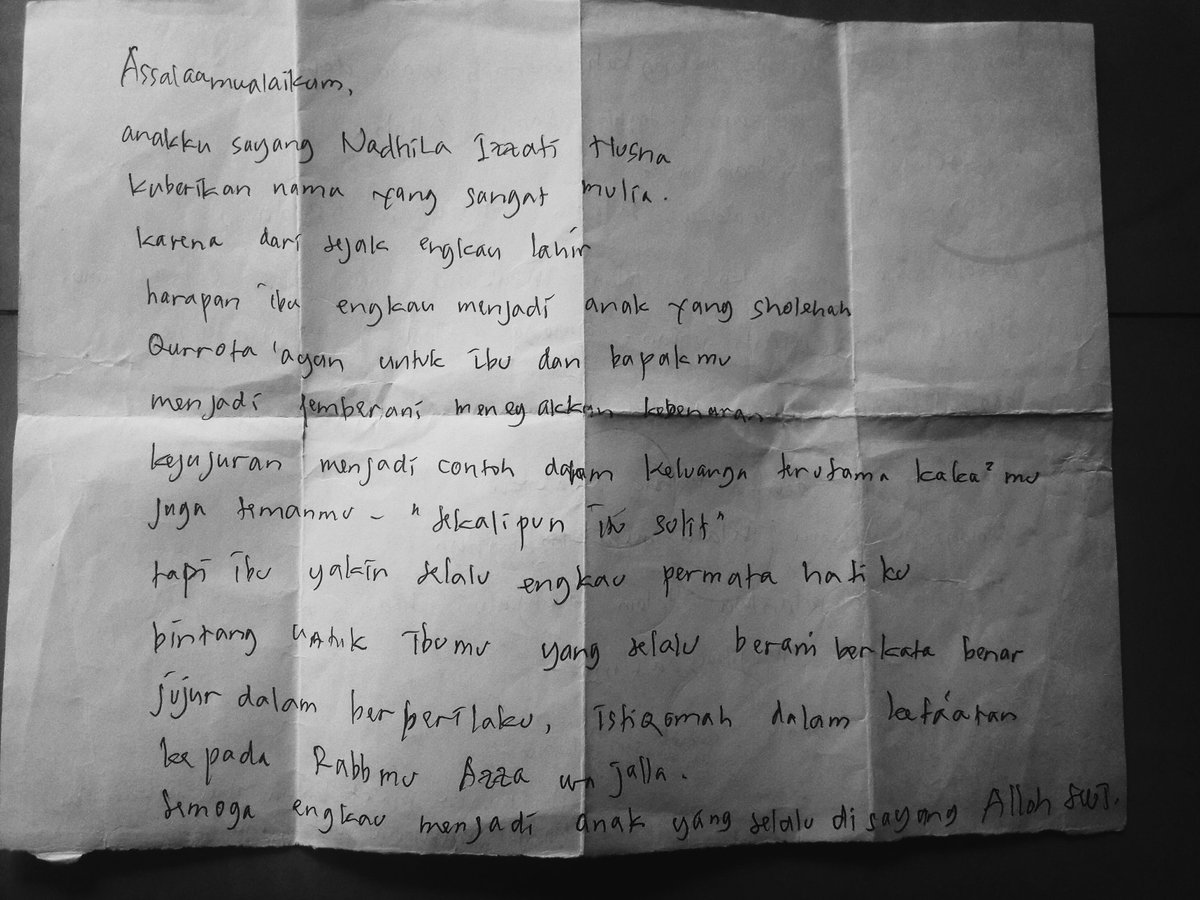 Assalaamualaikum,
anakku sayang Nadhila Izzati Husna
kuberikan nama yang sangat mulia.
karena dari sejak engkau lahir
harapan ibu engkau menjadi anak yang sholehah
Qurrota 'ayun untuk ibu dan bapakmu
menjadi pemberani menegakkan kebenaran
kejujuran menjadi contoh dalam keluarga terutama kaka² mu
juga temanmu - "sekalipun itu sulit"
tapi ibu yakin selalu engkau permata hatiku
bintang untuk ibumu yang selalu berani berkata benar
jujur dalam berperilaku, istiqomah dalam keta'atan
kepada Rabbmu Azza wa jalla.
semoga engkau menjadi anak yang selalu disayang Alloh SWT.